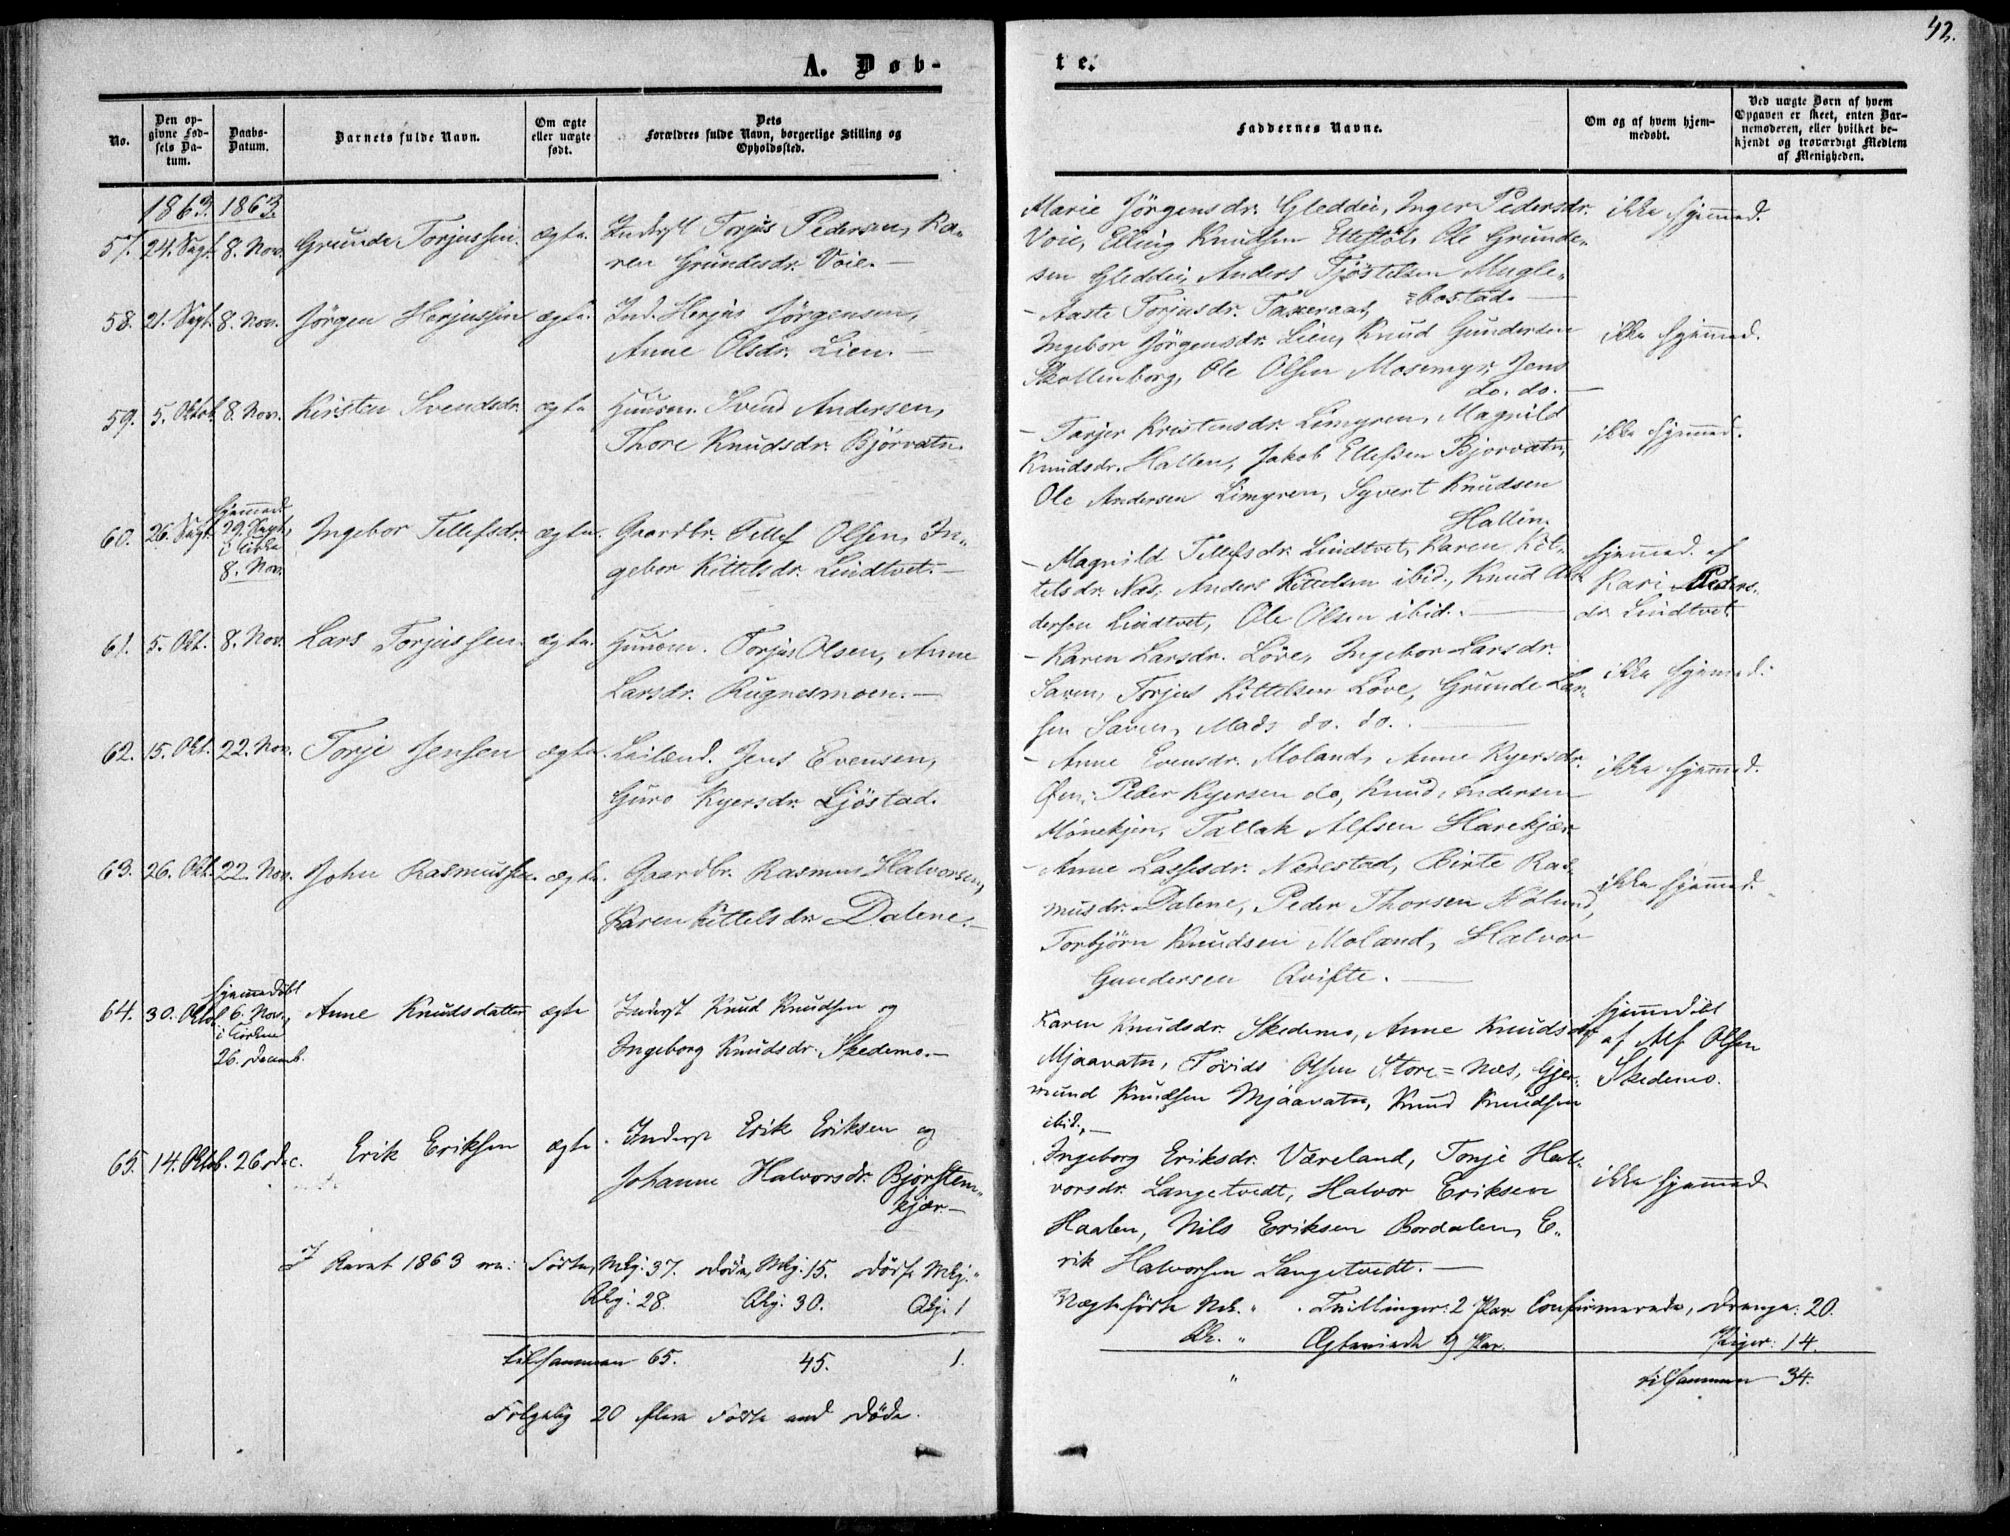 42.
A. Døb-
te.
No.
Den op-
givne Fød-
sels Da-
tum.
Daabs-
Datum.
Barnets fulde Navn.
Om ægte
eller uægte
født.
Dets
Forældres fulde Navn, borgerlige Stilling og
Opholdssted.
Faddernes Navne.
Om og af hvem hjem-
medøbt.
Ved uægte Børn af hvem
Opgaven er skeet, enten Bar-
nemoderen, eller hvilket be-
kjendt og troværdigt Medlem
af Menigheden.
1863. 1863.
57. 24. Sept. 8. Nov. Grunde Torjussen. ægte. Inderst Torjus Pedersen, Ka-
ren Grundesdr. Voie. —
Marie Jörgensdr. Gleddie, Inger Pedersdr.
Voie, Elling Knudsen Ettestöl, Ole Grunde-
sen Gleddie, Anders Tjöstelsen Mugle-
bostad. —
ikke hjemmed.
58. 21. Sept. 8. Nov. Jörgen Herjussen ægte. Ind. Herjus Jörgensen,
Anne Olsdr. Lien. —
— Aaste Torjusdr. Taxeraas,
Ingebor Jörgensdr. Lien, Knud Gundersen
Skollenborg, Ole Olsen Mosemyr, Jens
do. do. —
ikke hjemmed.
59. 5. Oktob. 8. Nov. Kirsten Svendsdr. ægte Huusm. Svend Andersen,
Thore Knudsdr. Björvatn.
— Tarjer Kristensdr. Limyren, Magnild
Knudsdr. Hallen, Jakob Ellefsen Bjorvatn,
Ole Andersen Limyren, Syvert Knudsen
Hallin.
ikke hjemmed.
60. 26. Sept. hjemmed.
29. Sept.,
i Kirke
8. Nov. Ingebor Tellefsdr. ægte. Gaardbr. Tellef Olsen, In-
gebor Kittelsdr. Lindtvet. —
— Magnild Tellefsdr. Lindtvet, Karen Kit-
telsdr. Næs, Anders Kittelsen ibid., Knud An-
dersen Lindtvet, Ole Olsen ibid. —
hjemmed. af
Kari Peders-
dr. Lindtvet
61. 5. Okt. 8. Nov. Lars Torjussen. ægte. Huusm. Torjus Olsen, Anne
Larsdr. Rugnesmoen. —
— Karen Larsdr. Löve, Ingebor Larsdr.
Saven, Torjus Kittelsen Löve, Grunde Lar-
sen Saven, Mads do. do. —
ikke hjemmed.
62. 15. Okt. 22. Nov. Torje Jensen ægte. Leilænd. Jens Evensen,
Guro Kyersdr. Ljöstad.
— Anne Evensdr. Moland, Anne Kyersdr.
Öen, Peder Kyersen do, Knud Andersen
Mönekjen, Tallak Alfsen Harekjær
ikke hjemmed.
63. 26. Okt. 22. Nov. John Rasmussen. ægte. Gaardbr. Rasmus Halvorsen,
Karen Kittelsdr. Dalene. —
— Anne Lassesdr. Nærestad, Birte Ras-
musdr. Dalene, Peder Thorsen Hölund,
Torbjörn Knudsen Moland, Halvor
Gundersen Qvifte. —
ikke hjemmed.
64. 30. Oktob. hjemmedöbt
6. Nov.,
i Kirken
26. Decemb. Anne Knudsdatter ægte Inderst Knud Knudsen og
Ingeborg Knudsdr. Skedemo. —
Karen Knudsdr. Skedemo, Anne Knudsdr
Mjaavatn, Tövids Olsen Store=Næs, Gjer-
mund Knudsen Mjaavatn, Knud Knudsen
ibid. —
hjemmedöbt
af Alf Olsen
Skedemo.
65. 14. Oktob. 26 Dec. Erik Eriksen ægte. Inderst Erik Eriksen og
Johanne Halvorsdr. Bjorstem-
kjær. —
Ingeborg Eriksdr. Væreland, Tonje Hal-
vorsdr. Langetvedt, Halvor Eriksen
Haalen, Nils Eriksen Bordalen, E-
rik Halvorsen Langetvedt. —
ikke hjemmed.
I Aaret 1863 ere: Födte, Mkj: 37. Döde, Mkj: 15. Dödf. Mkj: "
Qkj: 28. Qkj: 30. Qkj: 1
tilsammen 65. 45. 1.
Fölgelig 20 flere Födte end Döde.
Uægte födte Mk. " Tvillinger: 2 Par Confirmerede, Drenge: 20.
Qk. " Ægteviede 9 Par. Piger: 14.
" tilsammen 34.